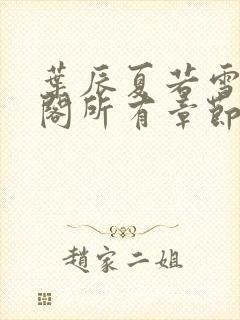 葉辰夏若雪
閣所有章節
趙家二姐